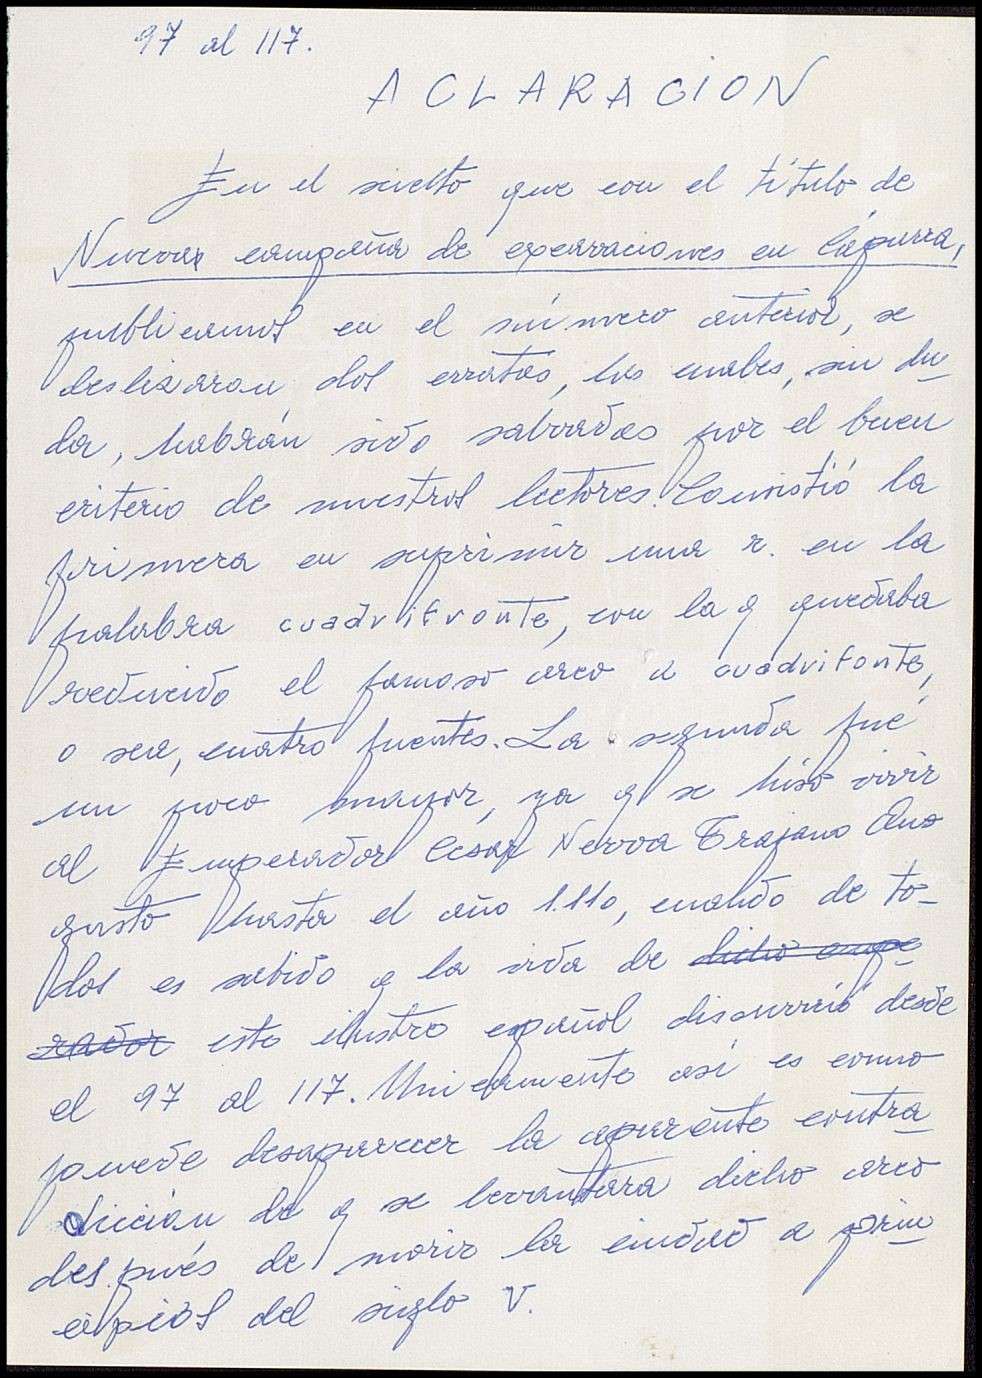 97 al 117.
ACLARACION
En el suelto que con el título de
Nueva campaña de excavaciones en Cáparra,
publicamos en el número anterior, se
deslizaron dos erratas, las cuales, sin du-
da, habrán sido salvadas por el buen
criterio de nuestros lectores. Consistió la
primera en suprimir una r. en la
palabra cuadrifronte, con la q quedaba
reducido el famoso arco a cuadrifonte,
o sea, cuatro fuentes. La segunda fué
un poco mayor, ya q se hiso vivir
al Emperador Cesar Nerva Trajano Au
gusto hasta el año 1.110, cuando de to-
dos es sabido q la vida de dicho empe
rador este ilustre español discurrió desde
el 97 al 117. Unicamente así es como
puede desaparecer la aparente contra
dicción de q se levantara dicho arco
después de morir la ciudad a prin
cipios del siglo V.